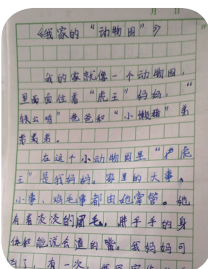 《我家的“动物园”》
我的家就像一个动物园，
里面住着“虎王”妈妈，“
铁公鸡”爸爸和“小懒猪”弟
弟
在这个小动物园里“
王”是我妈妈。家里的大事、
小事、鸡毛事都由他掌管。她
有着浓浓的眉毛，胖乎乎的身
体和能说会道的嘴。我妈妈可
了，有一次，我